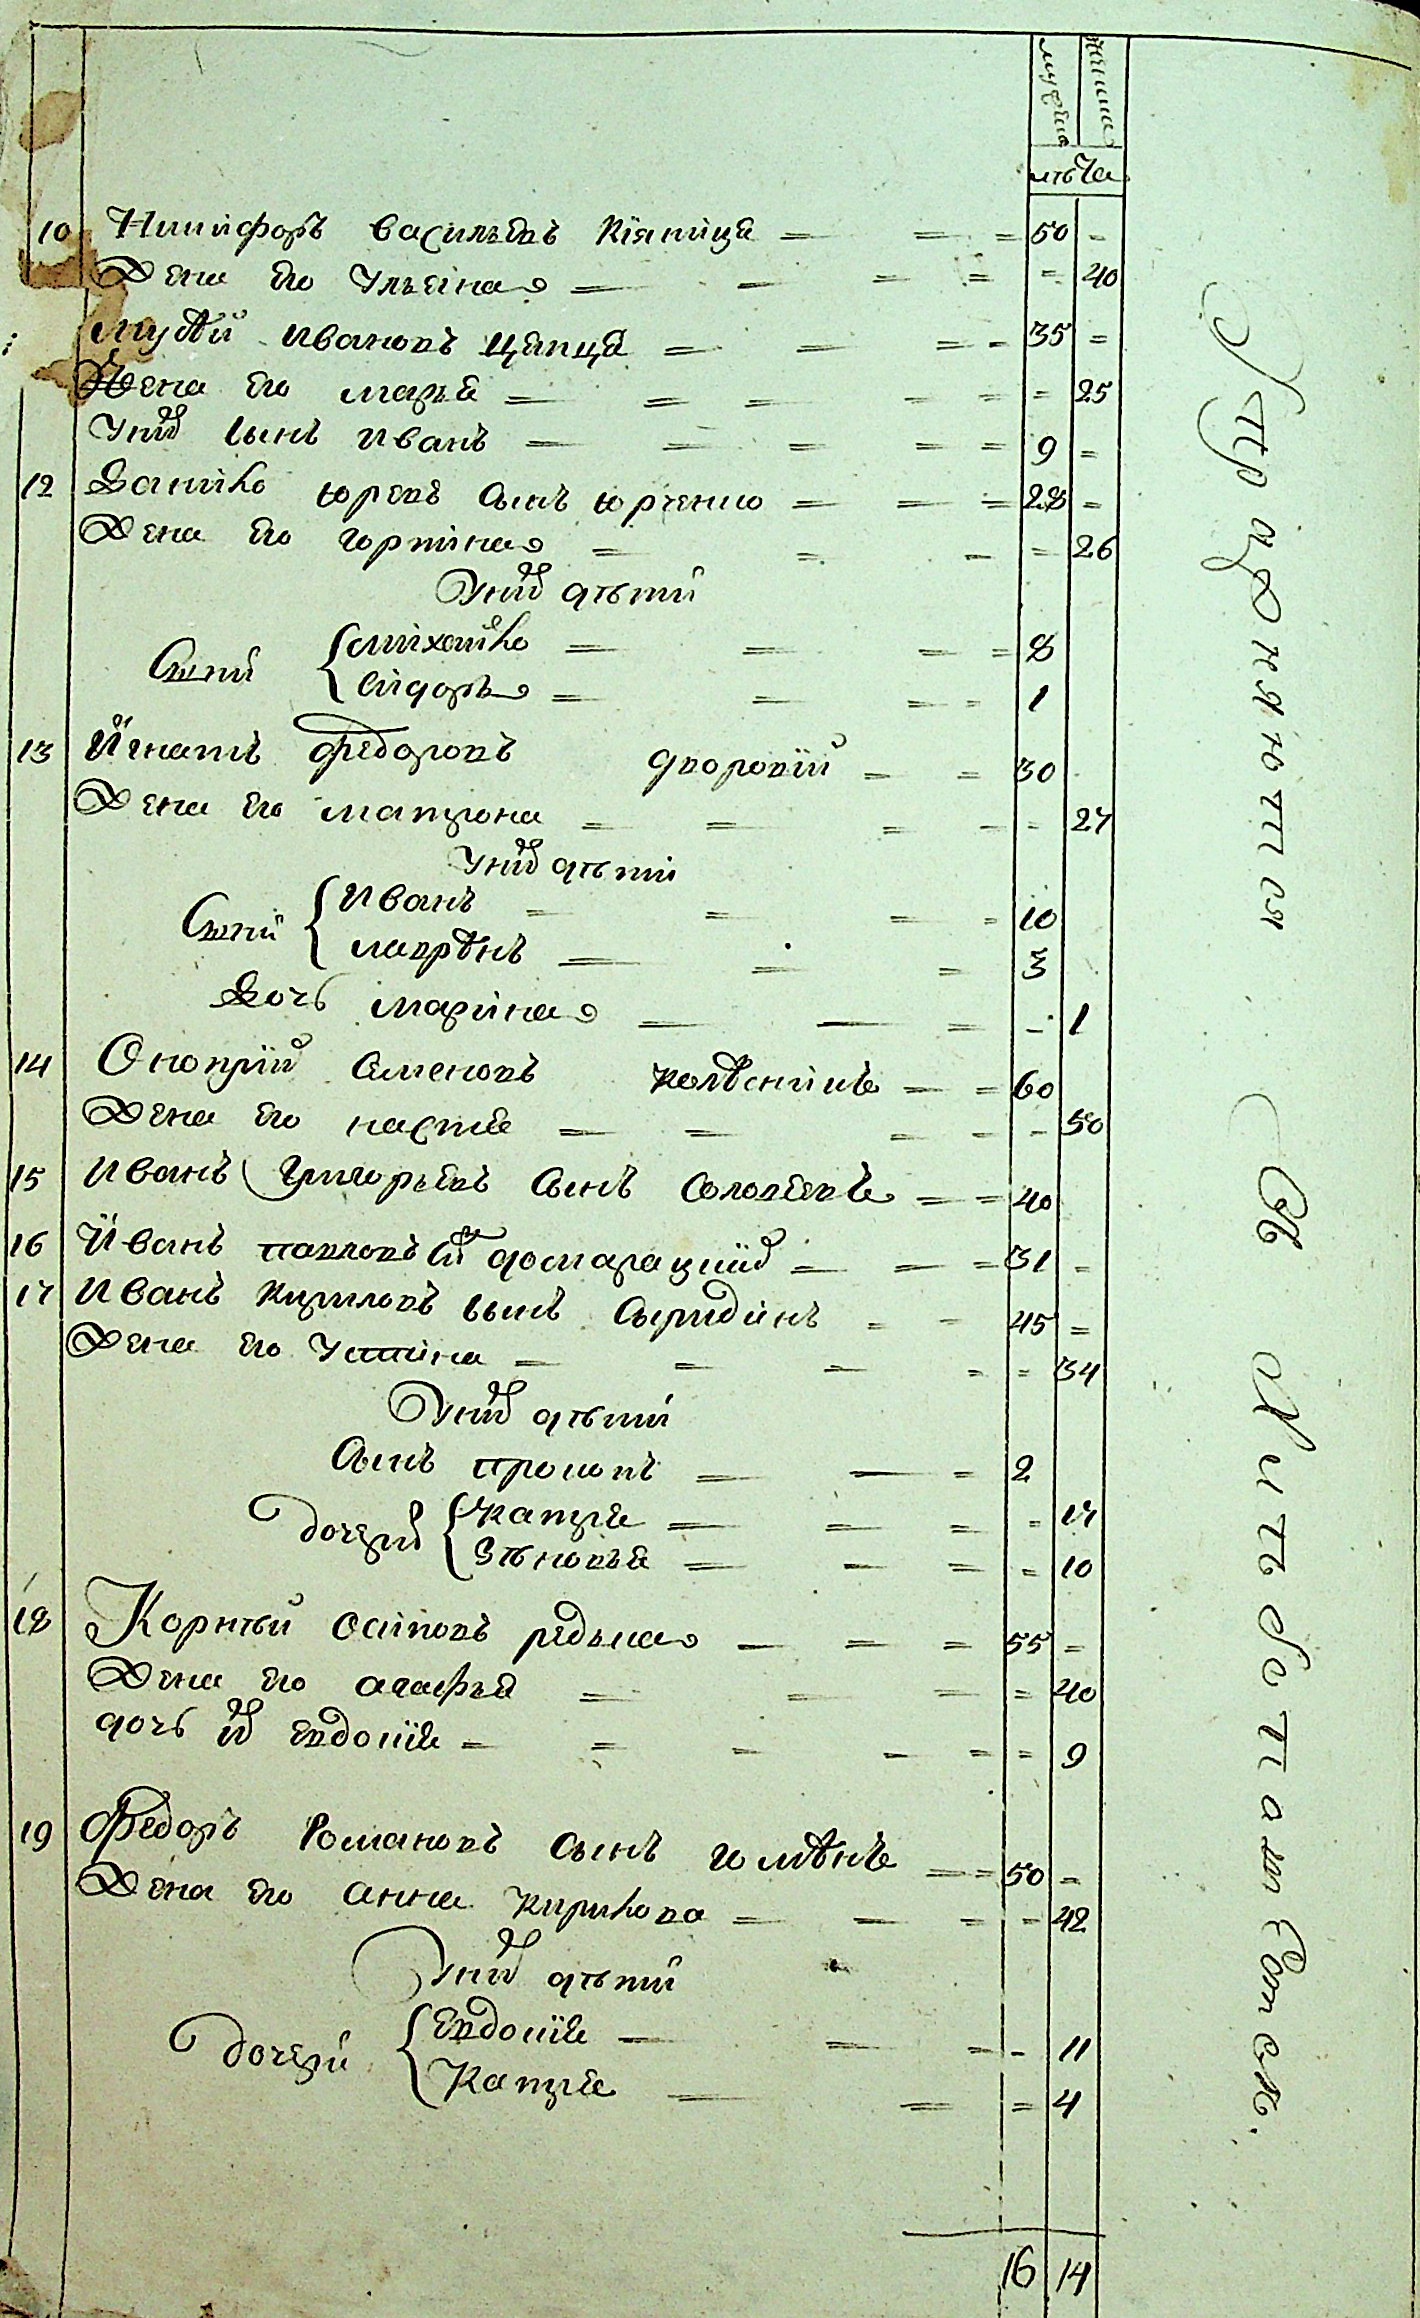 мужска женска
лѣта
10 Никифоръ Васильевъ Кіяница 50
Жена его Ульяна 40
Мусѣй Ивановъ Цапца 35
Жена его Марья 25
У них сынъ Иванъ 9
12 Данило Юревъ сынъ Юрченко 28
Жена его Горпина 26
У них дѣти
Сыни
Михайло 8
Сидоръ 1
13 Игнатъ Федоровъ Яворовій 30
Жена его Матрона 27
У них дѣти
Сыни
Иванъ 10
Лаврѣнъ 3
Дочь Марина 1
14 Онопрій Семеновъ Колѣсникъ 60
Жена его Настя 50
15 Иванъ Григорьевъ сынъ Соловьевъ 40
16 Иванъ Павловъ сн Домарацкий 31
17 Иванъ Кириловъ сынъ Свиридинъ 45
Жена его Устина 34
У них дѣти
Сынъ Прокопъ 2
Дочери
Катря 17
Зѣновья 10
18 Корнѣй Осиповъ Редька 55
Жена его Агафья 40
дочь их Евдокія 9
19 Федоръ Романовъ сынъ 50
Жена его Анна Кирилова 42
У них дѣти
Дочери
Евдокія 11
Катря 4
16 14